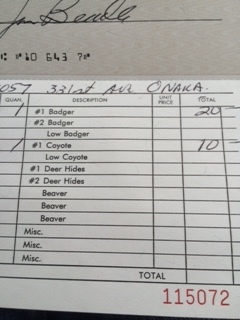 ⑆10 643 7⑈
057 331st Ave ONAKA.
QUAN. DESCRIPTION UNIT PRICE TOTAL
1 #1 Badger 20—
#2 Badger
Low Badger
1 #1 Coyote 10—
Low Coyote
#1 Deer Hides
#2 Deer Hides
Beaver
Beaver
Beaver
Misc.
Misc.
Misc.
TOTAL
115072